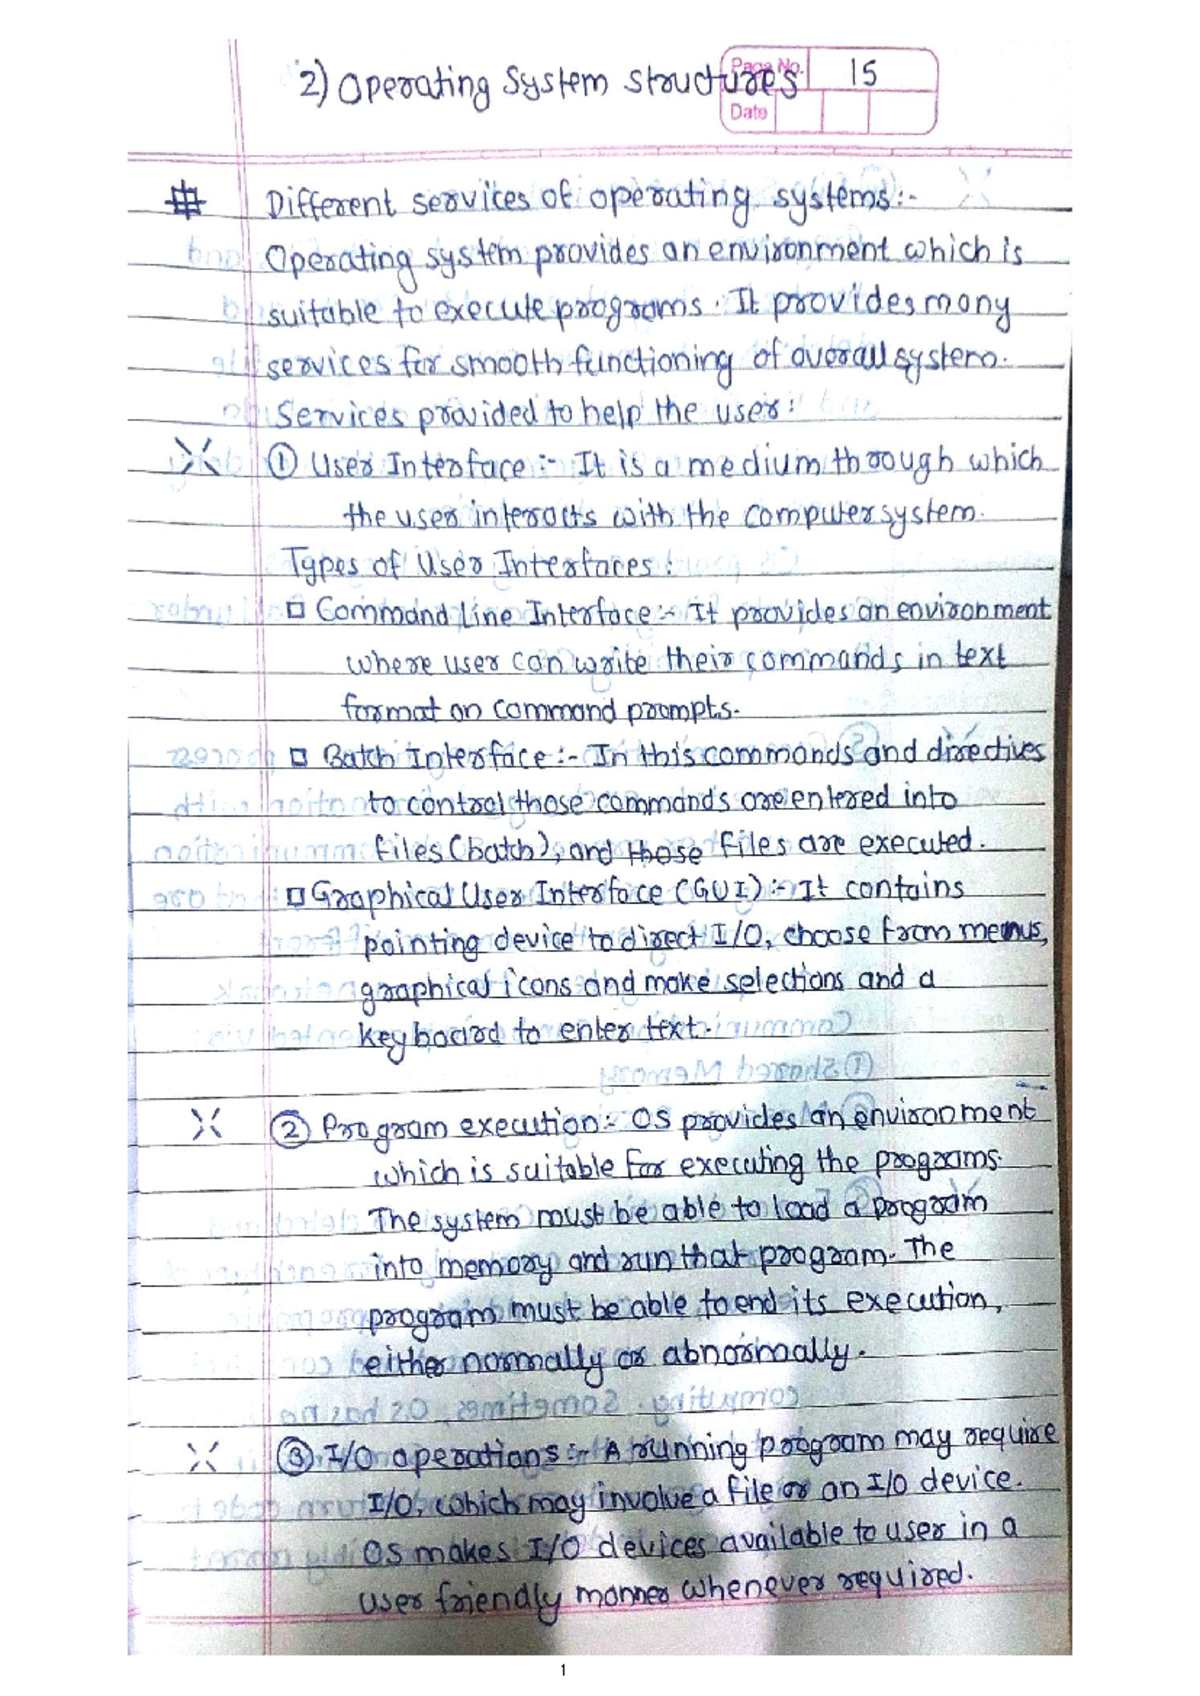 2) Operating System Structures
Page No. 15
Date
# Different services of operating systems:-
Operating system provides an environment which is
suitable to execute programs. It provides many
services for smooth functioning of overall system.
Services provided to help the user:
① User Interface :- It is a medium through which
the user interacts with the computer system.
Types of User Interfaces :
□ Command Line Interface :- It provides an environment
where user can write their commands in text
format on command prompts.
□ Batch Interface :- In this commands and directives
to control those commands are entered into
files (batch), and those files are executed.
□ Graphical User Interface (GUI) :- It contains
pointing device to direct I/O, choose from menus,
graphical icons and make selections and a
keyboard to enter text.
② Program execution :- OS provides an environment
which is suitable for executing the programs.
The system must be able to load a program
into memory and run that program. The
program must be able to end its execution,
either normally or abnormally.
③ I/O operations :- A running program may require
I/O, which may involve a file or an I/O device.
OS makes I/O devices available to user in a
user friendly manner whenever required.
1